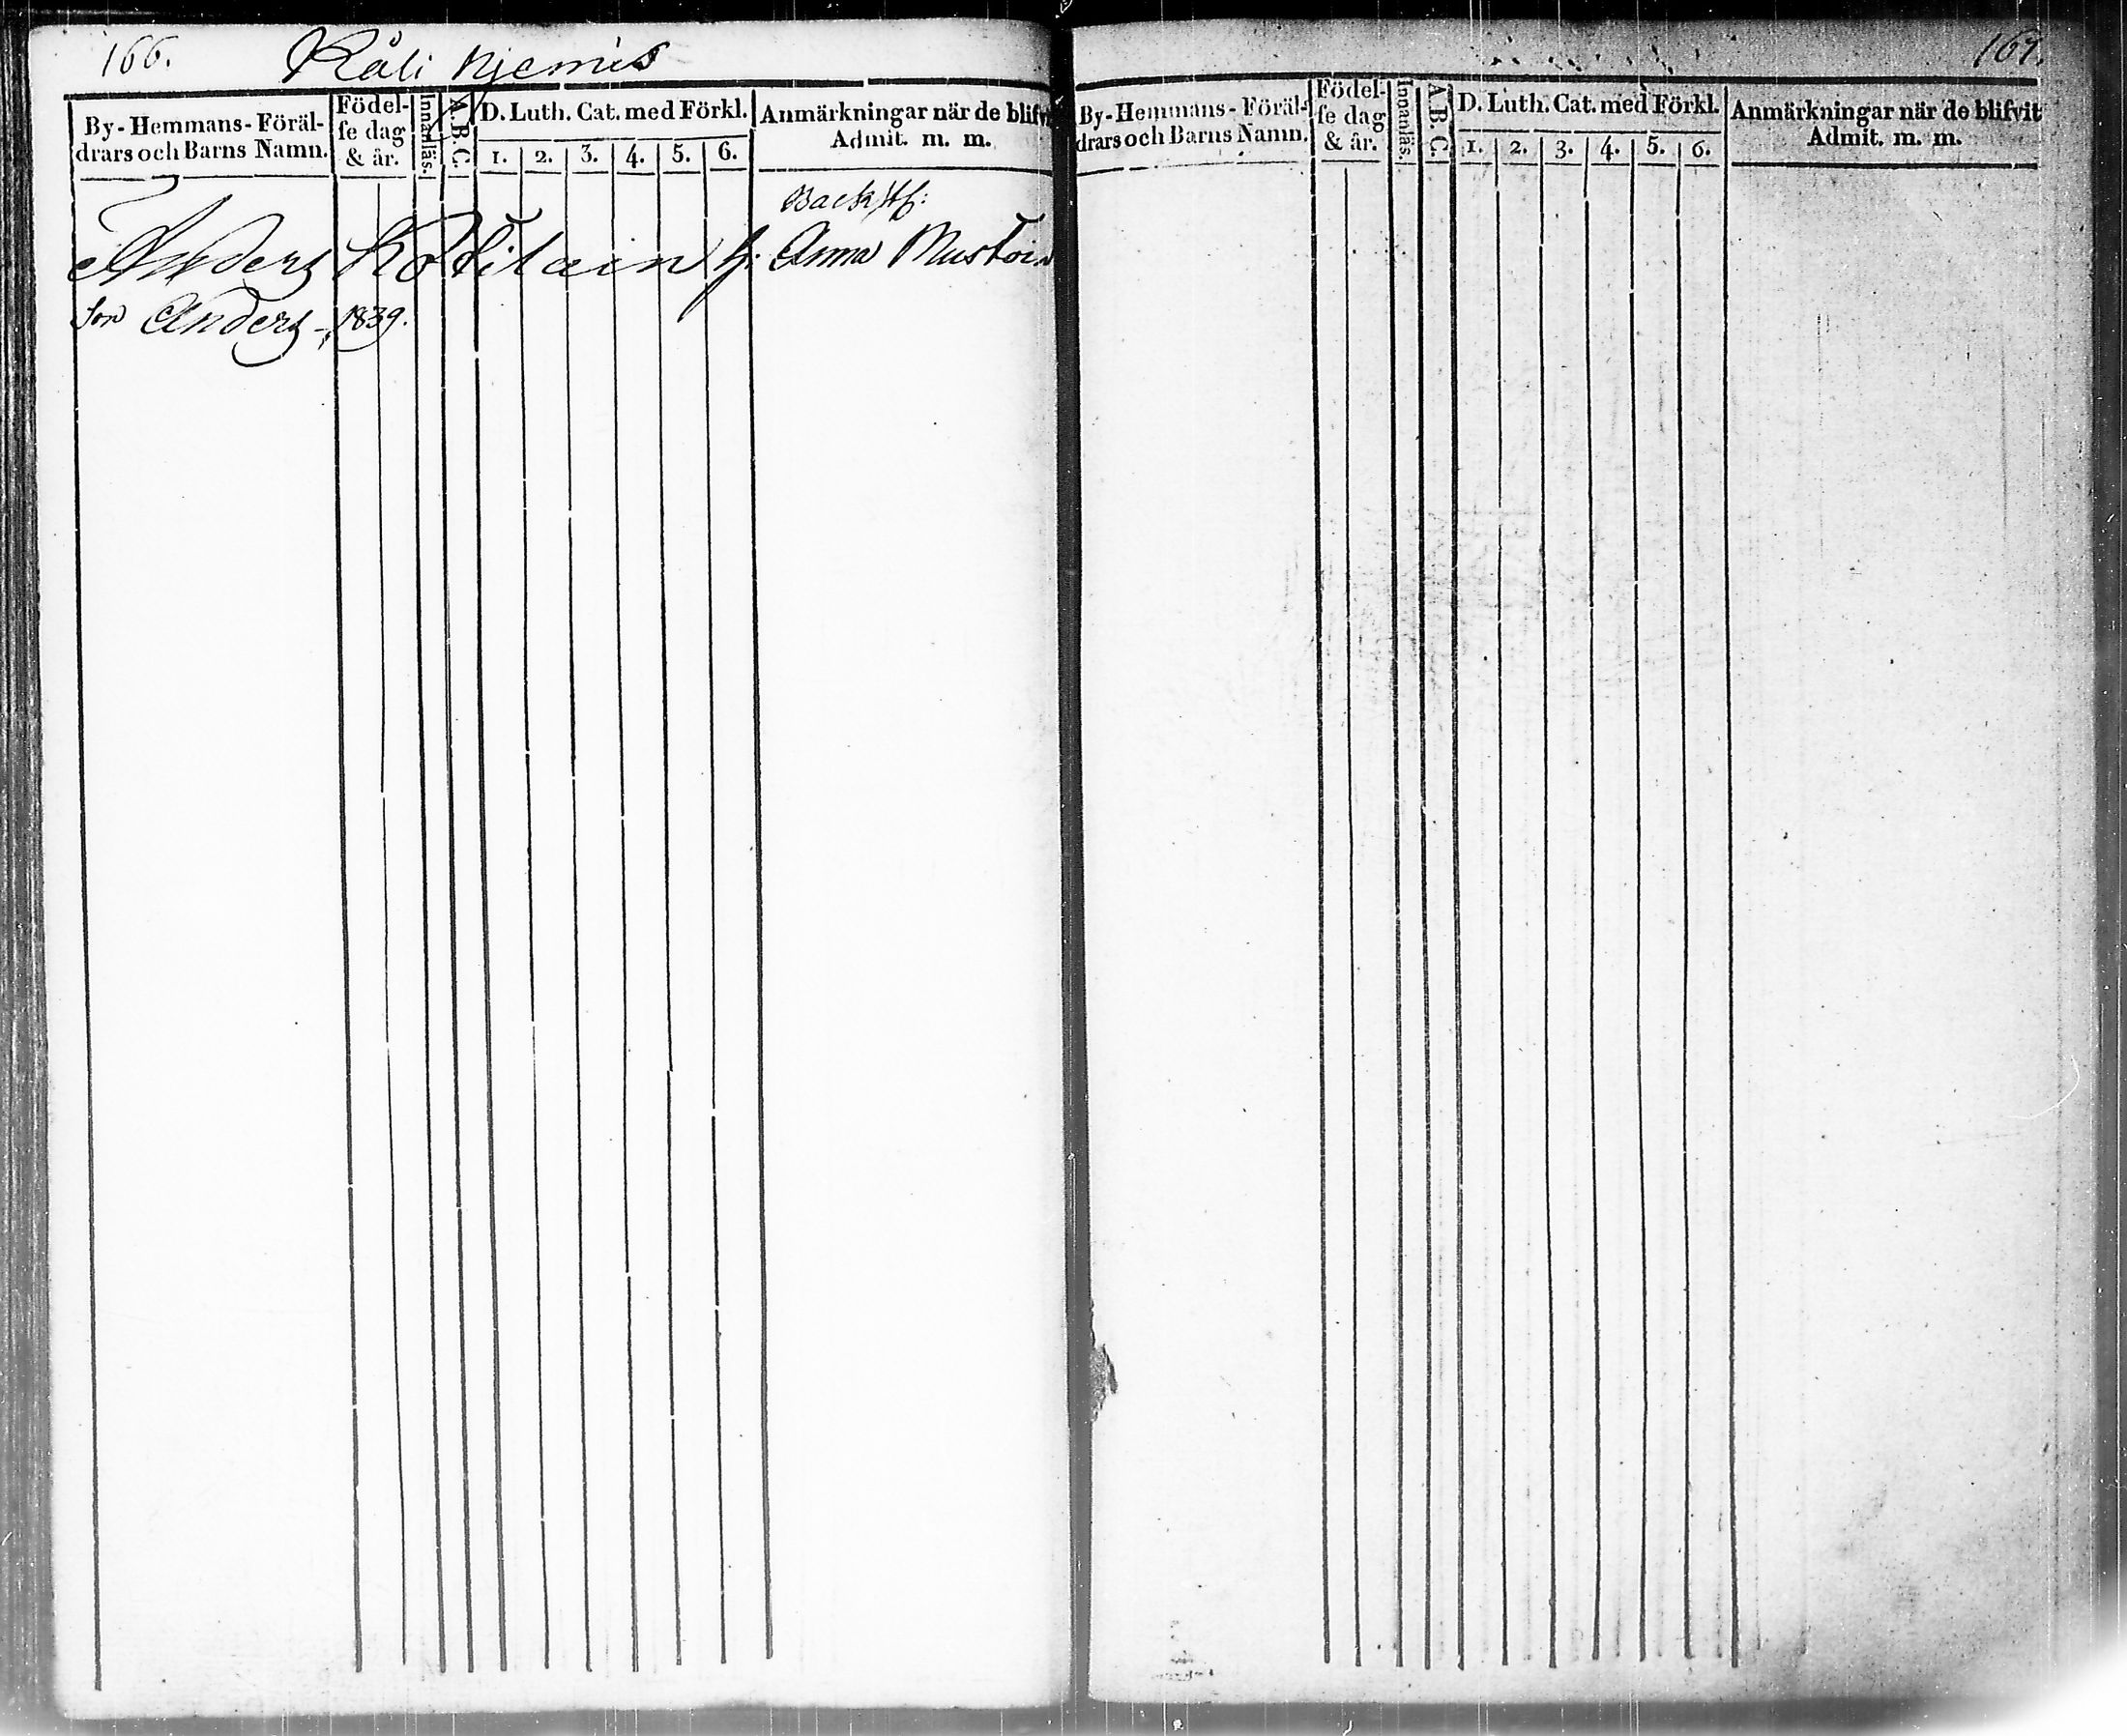 166.
Råli njemis
By-Hemmans-Föräl-
drars och Barns Namn.
Födel-
se dag
& år.
Innanläs.
A.B.C.
D. Luth. Cat. med Förkl.
1. 2. 3. 4. 5. 6.
Anmärkningar när de blifvit
Admit. m. m.
Anders Kotilain h: Anna Mustoin
Son Anders 1839.
167.
By-Hemmans-Föräl-
drars och Barns Namn.
Födel-
se dag
& år.
Innanläs.
A.B.C.
D. Luth. Cat. med Förkl.
1. 2. 3. 4. 5. 6.
Anmärkningar när de blifvit
Admit. m. m.